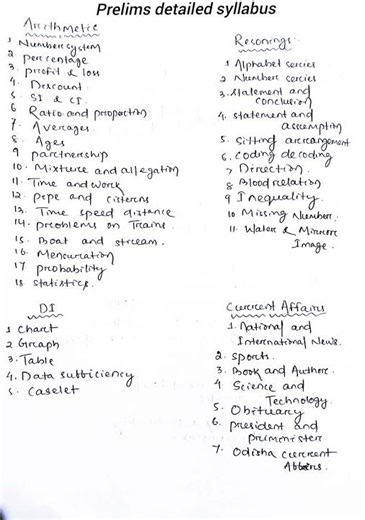 Prelims detailed syllabus
Arithmetic
1 Number system
2 percentage
3 profit & loss
4. Discount
5. SI & CI.
6 Ratio and proportion
7. Averages.
8. Ages
9 partnership
10. Mixture and allegation
11. Time and work
12. pipe and cisterns
13. Time speed distance
14. problems on Trains.
15. Boat and stream.
16. Mensuration
17 probability
18 statistics.
Resonings
1 Alphabet series
2 Number series
3. statement and
conclusion
4. statement and
assumption
5. Sitting arrangement
6. Coding decoding
7 Direction.
8 Blood relation
9 Inequality.
10 Missing Number.
11. Water & Mirror
Image.
DI
1 Chart
2 Graph
3. Table
4. Data sufficiency
5. Caselet
Current Affairs
1. National and
International News.
2. sports.
3. Book and Author.
4 Science and
Technology.
5. Obituary
6. president and
priminister
7. Odisha current
Affairs.